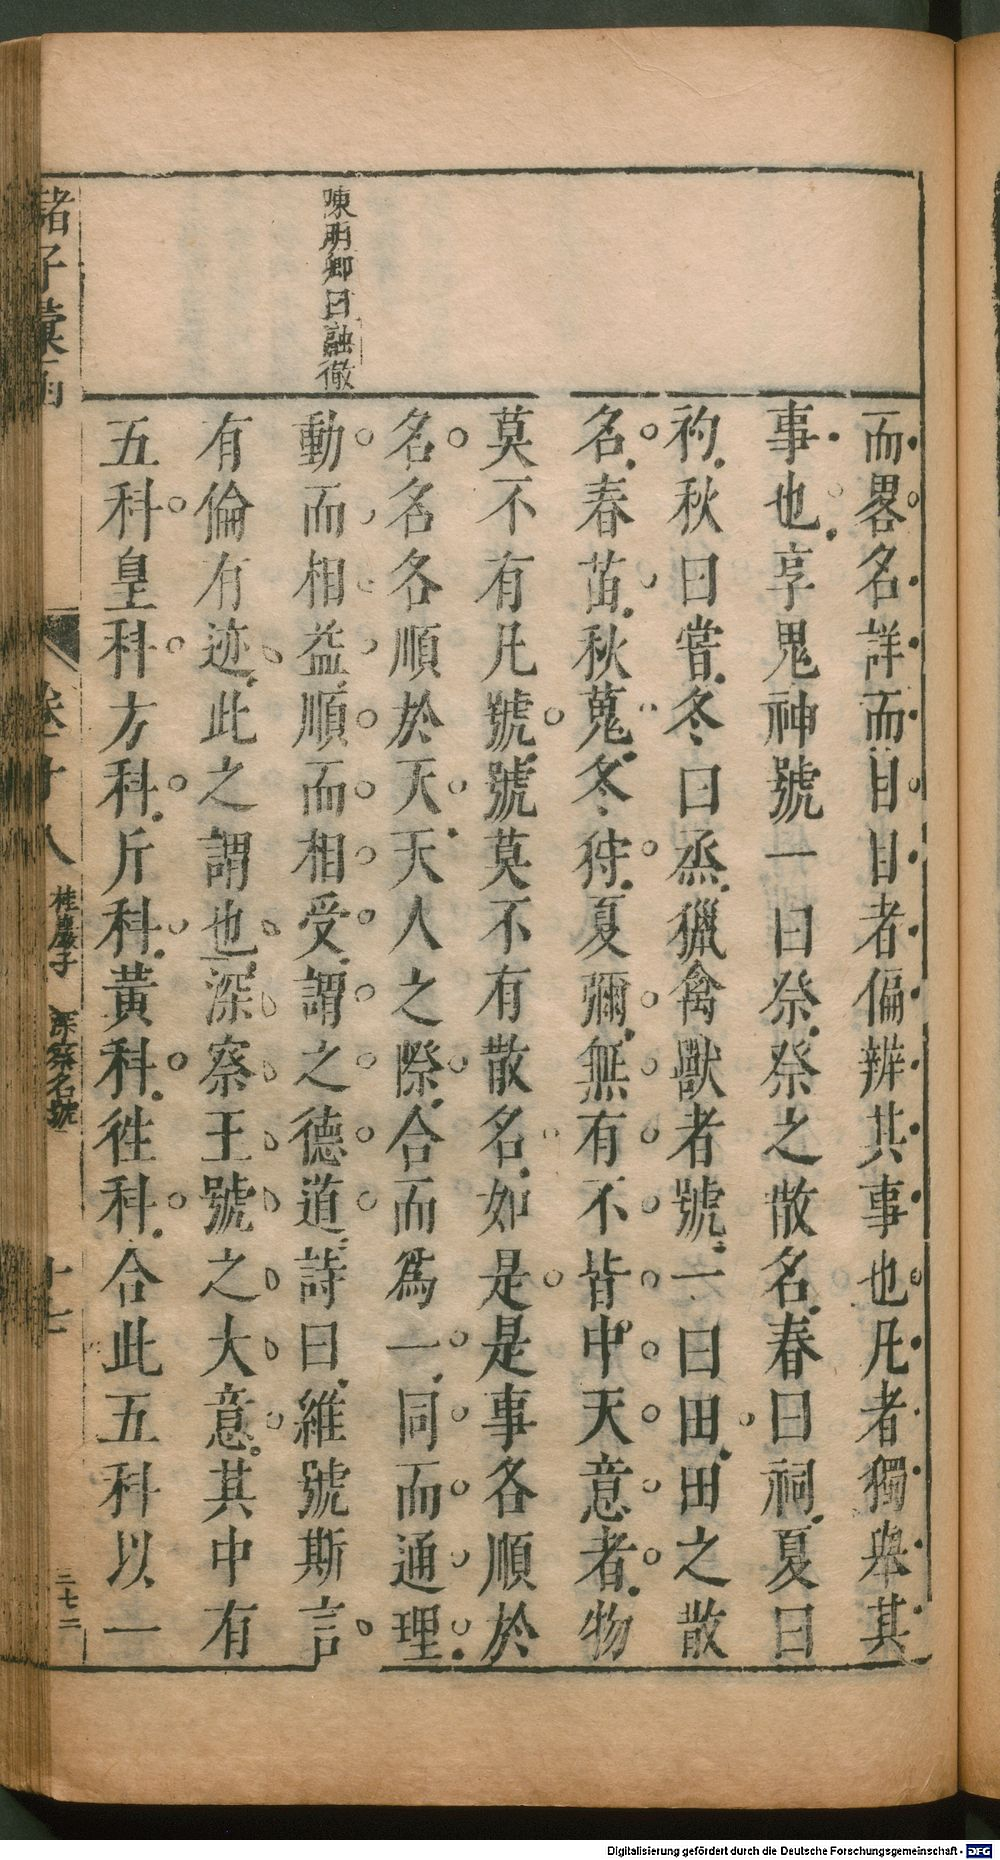 陳明卿曰融徹
而畧名詳而目目者偏辨其事也凡者獨舉其
事也享鬼神號一曰祭祭之散名春曰祠夏曰
礿秋曰嘗冬曰烝獵禽獸者號一曰田田之散
名春苗秋蒐冬狩夏獮無有不皆中天意者物
莫不有凡號號莫不有散名如是是事各順於
名名各順於天天人之際合而爲一同而通理
動而相益順而相受謂之德道詩曰維號斯言
有倫有迹此之謂也深察王號之大意其中有
五科皇科方科斤科黃科徃科合此五科以一
諸子彙函
卷十八
桂巖子 深察名號
十七
三七二
Digitalisierung gefördert durch die Deutsche Forschungsgemeinschaft - DFG